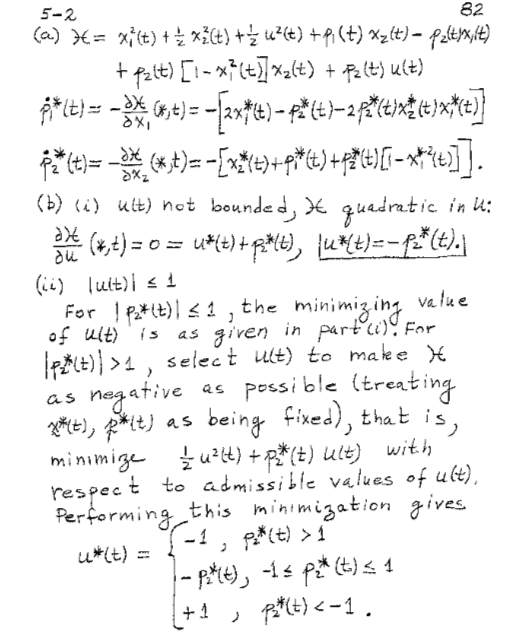 5-2 82
(a) ℋ = x₁²(t) + ½ x₂²(t) + ½ u²(t) + p₁(t) x₂(t) - p₂(t)x₁(t)
+ p₂(t) [1 - x₁²(t)] x₂(t) + p₂(t) u(t)
ṗ₁*(t) = -∂ℋ/∂x₁ (*,t) = -[2x₁*(t) - p₂*(t) - 2p₂*(t)x₂*(t)x₁*(t)]
ṗ₂*(t) = -∂ℋ/∂x₂ (*,t) = -[x₂*(t) + p₁*(t) + p₂*(t)[1 - x₁*²(t)]].
(b) (i) u(t) not bounded, ℋ quadratic in u:
∂ℋ/∂u (*,t) = 0 = u*(t) + p₂*(t), |u*(t) = -p₂*(t).|
(ii) |u(t)| ≤ 1
For |p₂*(t)| ≤ 1, the minimizing value
of u(t) is as given in part (i). For
|p₂*(t)| > 1, select u(t) to make ℋ
as negative as possible (treating
x*(t), p*(t) as being fixed), that is,
minimize ½ u²(t) + p₂*(t) u(t) with
respect to admissible values of u(t).
Performing this minimization gives
u*(t) = { -1, p₂*(t) > 1
-p₂*(t), -1 ≤ p₂*(t) ≤ 1
+1, p₂*(t) < -1.